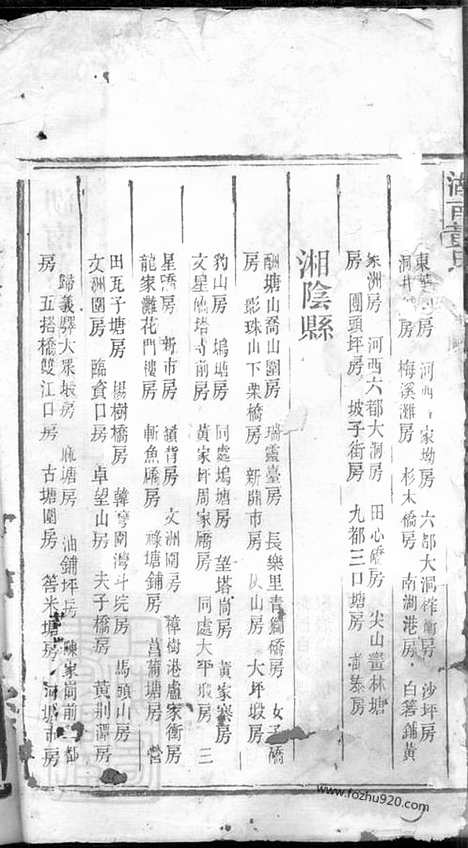 湖南
東 房 河西 家坳房 六都大洞 衝房 沙坪房
洞井 房 梅溪灘房 杉木橋房 南湖港房 白箬鋪黃
洲房 河西六都大洞房 田心橋房 尖山 林塘
房 團頭坪房 坡子街房 九都三口塘房 房
湘陰縣
塘山喬山圍房 瑞靈臺房 長樂里青 橋房 女 橋
房 影珠山下栗橋房 新開市房 山房 大坪塅房
豹山房 塢塘房 同處塢塘房 望塔岡房 黃家寨房
文星 塔寺前房 黃家坪周家橋房 同處大平塅房 三
星 房 市房 嶺背房 文洲圍房 樟樹港盧家衝房
龍家灘花門樓房 斬魚橋房 祿塘鋪房 菖蒲塘房 營
田瓦子塘房 楊樹橋房 韓灣圍灣斗垸房 馬頭山房
文洲圍房 臨資口房 卓望山房 夫子橋房 黃荊潭房
歸義驛大眾塅房 塘房 油鋪坪房 陳家崗前 都
房 五搭橋雙江口房 古塘圍房 箬米塘房 河塘市房
www.fozhu920.com